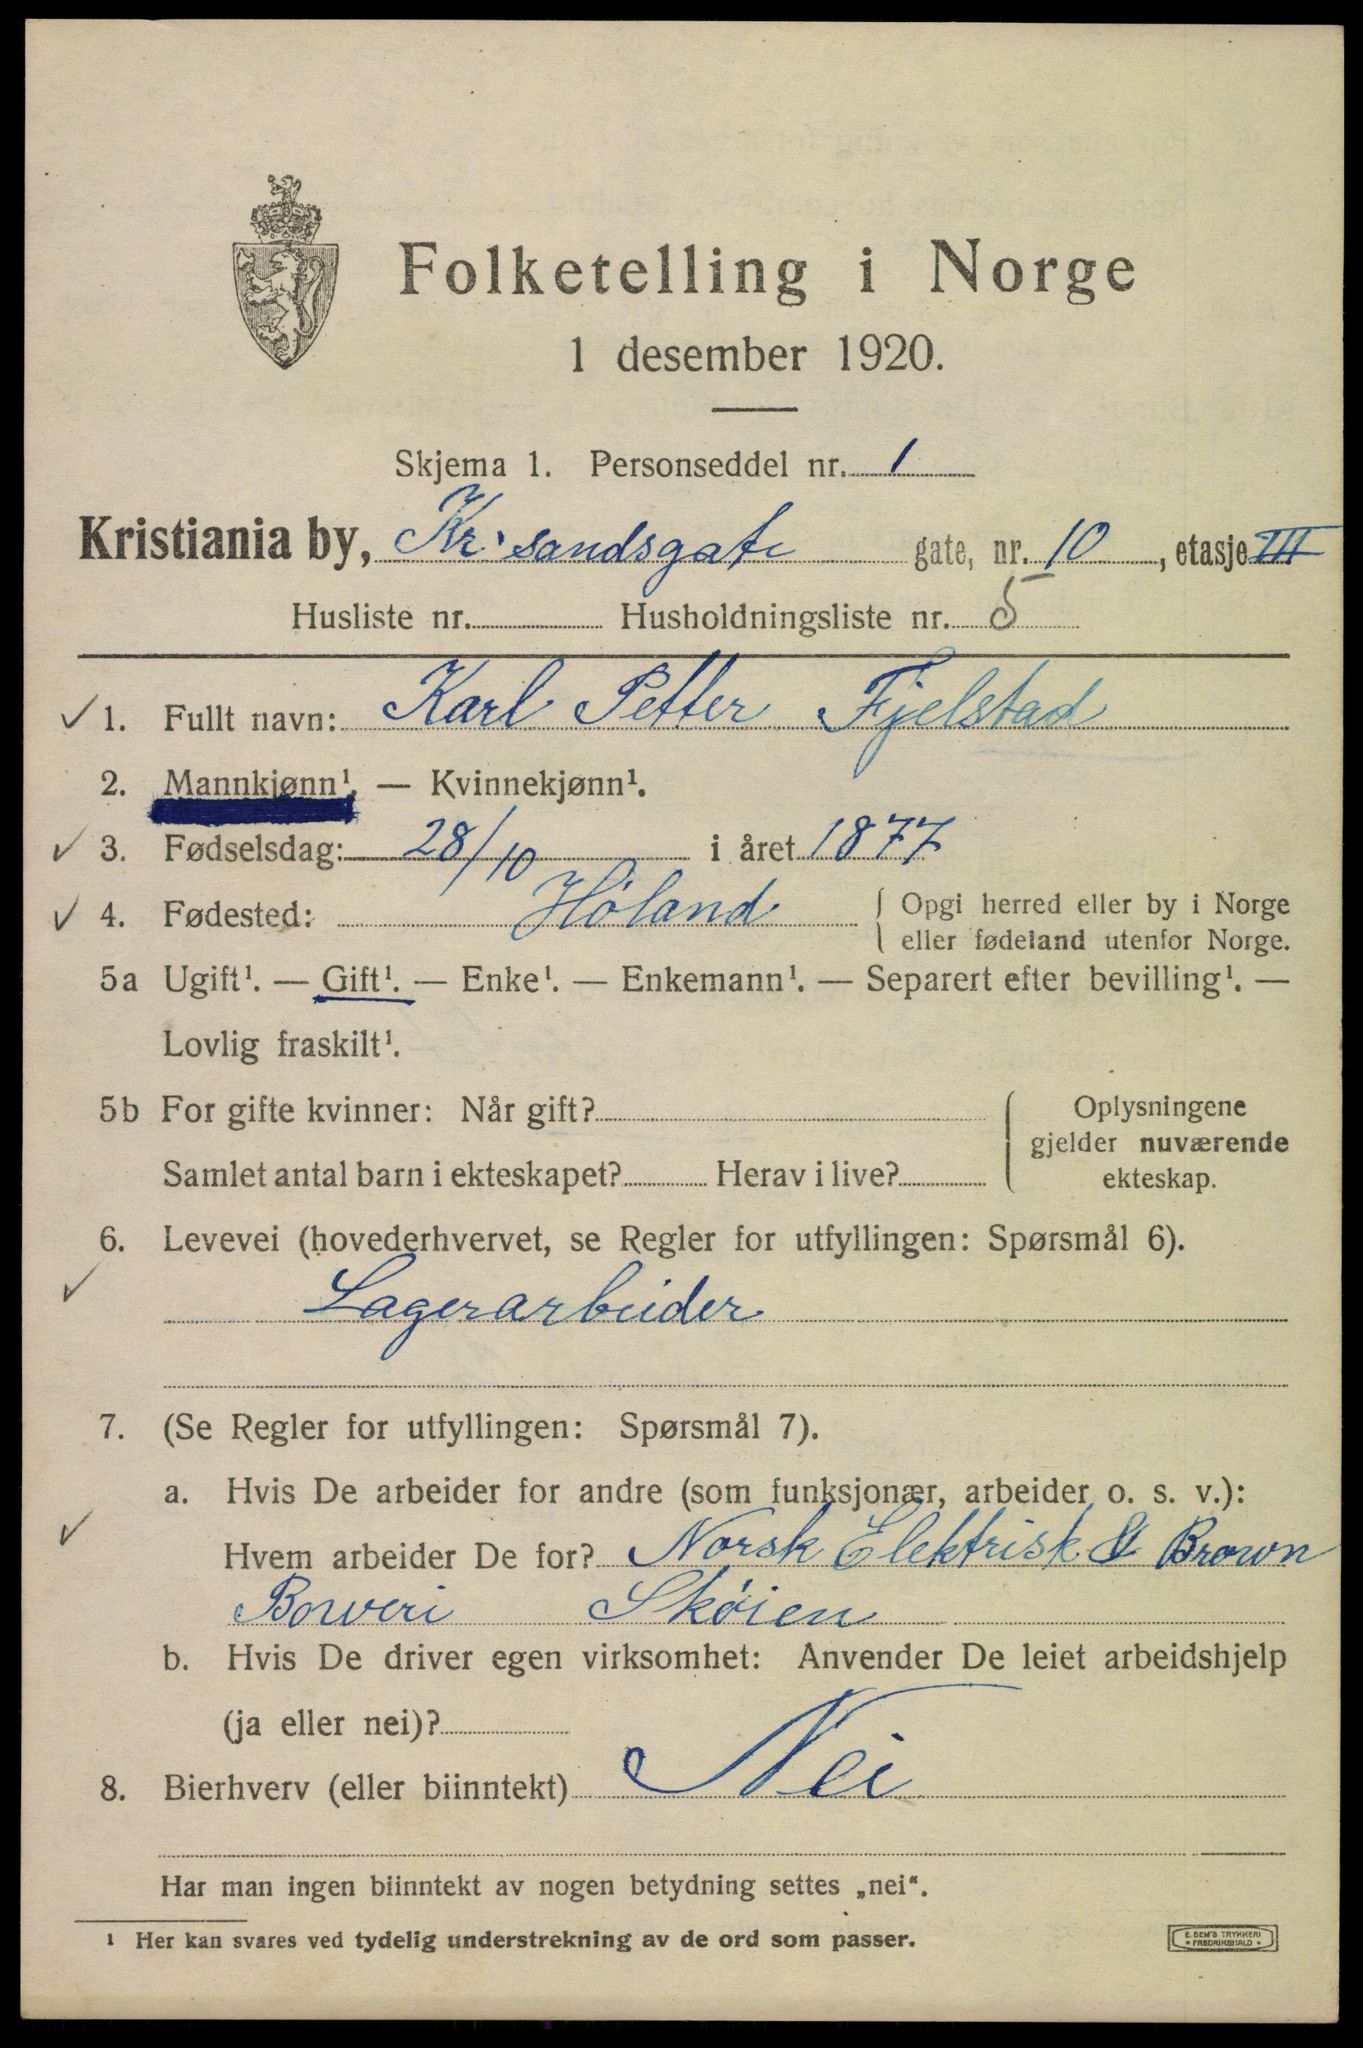 Folketelling i Norge
1 desember 1920.
Skjema 1. Personseddel nr. 1
Kristiania by, Kr.sandsgate gate, nr. 10, etasje III
Husliste nr. Husholdningsliste nr. 5
1. Fullt navn: Karl Petter Fjelstad
2. Mannkjønn¹. — Kvinnekjønn¹.
3. Fødselsdag: 28/10 i året 1877
4. Fødested: Høland { Opgi herred eller by i Norge
eller fødeland utenfor Norge.
5a Ugift¹. — Gift¹. — Enke¹. — Enkemann¹. — Separert efter bevilling¹. —
Lovlig fraskilt¹.
5b For gifte kvinner: Når gift? { Oplysningene
gjelder nuværende
Samlet antal barn i ekteskapet? Herav i live? ekteskap.
6. Levevei (hovederhvervet, se Regler for utfyllingen: Spørsmål 6).
Lagerarbeider
7. (Se Regler for utfyllingen: Spørsmål 7).
a. Hvis De arbeider for andre (som funksjonær, arbeider o. s. v.):
Hvem arbeider De for? Norsk Elektrisk & Brown
Boweri Skøien
b. Hvis De driver egen virksomhet: Anvender De leiet arbeidshjelp
(ja eller nei)?
8. Bierhverv (eller biinntekt) Nei
Har man ingen biinntekt av nogen betydning settes „nei“.
¹ Her kan svares ved tydelig understrekning av de ord som passer.
E. SEM'S TRYKKERI
• FREDRIKSHALD •